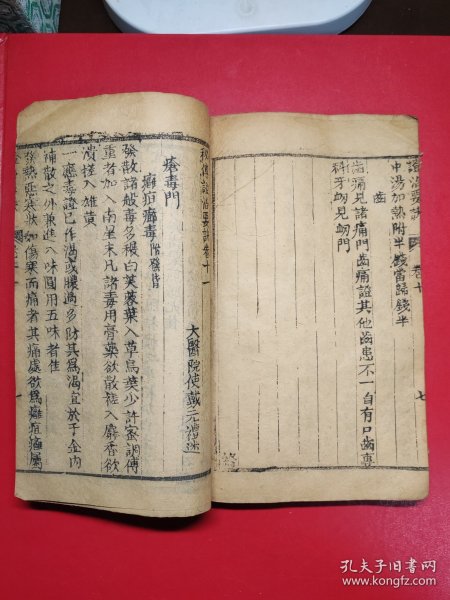 證治要訣 卷十
中湯加熱附半錢當歸錢半
齒
齒痛見諸痛門齒痛證其他齒患不一自有口齒專
科牙衂見衂門
七
秘傳證治要訣卷十一
太醫院使戴元禮述
瘡毒門
癰疽癤毒
發散諸般毒多穫白芙蓉葉入草烏葉少許蜜調傅
重者加入南星末凡諸毒用膏藥欲散種入麝香欲
潰種入雄黄
一癰毒證已作渴或膿過多防其爲渴宜於于金内
補散之外兼進八味圓用五味者佳
發熱惡寒狀如傷寒而痛者其痛處欲爲癰疽癤屬
孔夫子旧书网
www.kongfz.com